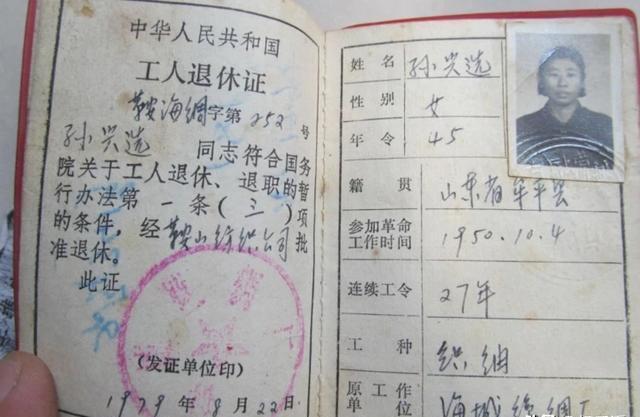 中华人民共和国
工人退休证
鞍海绸字第252号
孙兴选 同志符合国务
院关于工人退休、退职的暂
行办法第一条(三)项
的条件,经鞍山纺织公司批
准退休。
此证
(发证单位印)
1979年8月22日
姓名 孙兴选
性别 女
年令 45
籍贯 山东省牟平县
参加革命工作时间 1950.10.4
连续工令 27年
工种 织绸
原工作单 海城